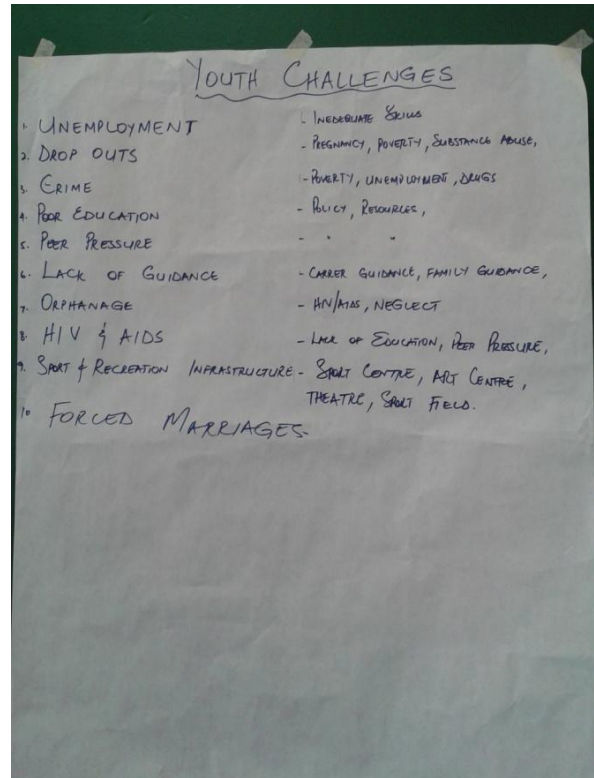 YOUTH CHALLENGES
1. UNEMPLOYMENT - INEDEQUATE SKILLS
2. DROP OUTS - PREGNANCY, POVERTY, SUBSTANCE ABUSE,
3. CRIME - POVERTY, UNEMPLOYMENT, DRUGS
4. POOR EDUCATION - POLICY, RESOURCES,
5. PEER PRESSURE - " "
6. LACK OF GUIDANCE - CARRER GUIDANCE, FAMILY GUIDANCE,
7. ORPHANAGE - HIV/AIDS, NEGLECT
8. HIV & AIDS - LACK OF EDUCATION, PEER PRESSURE,
9. SPORT & RECREATION INFRASTRUCTURE - SPORT CENTRE, ART CENTRE,
THEATRE, SPORT FIELD.
10 FORCED MARRIAGES-